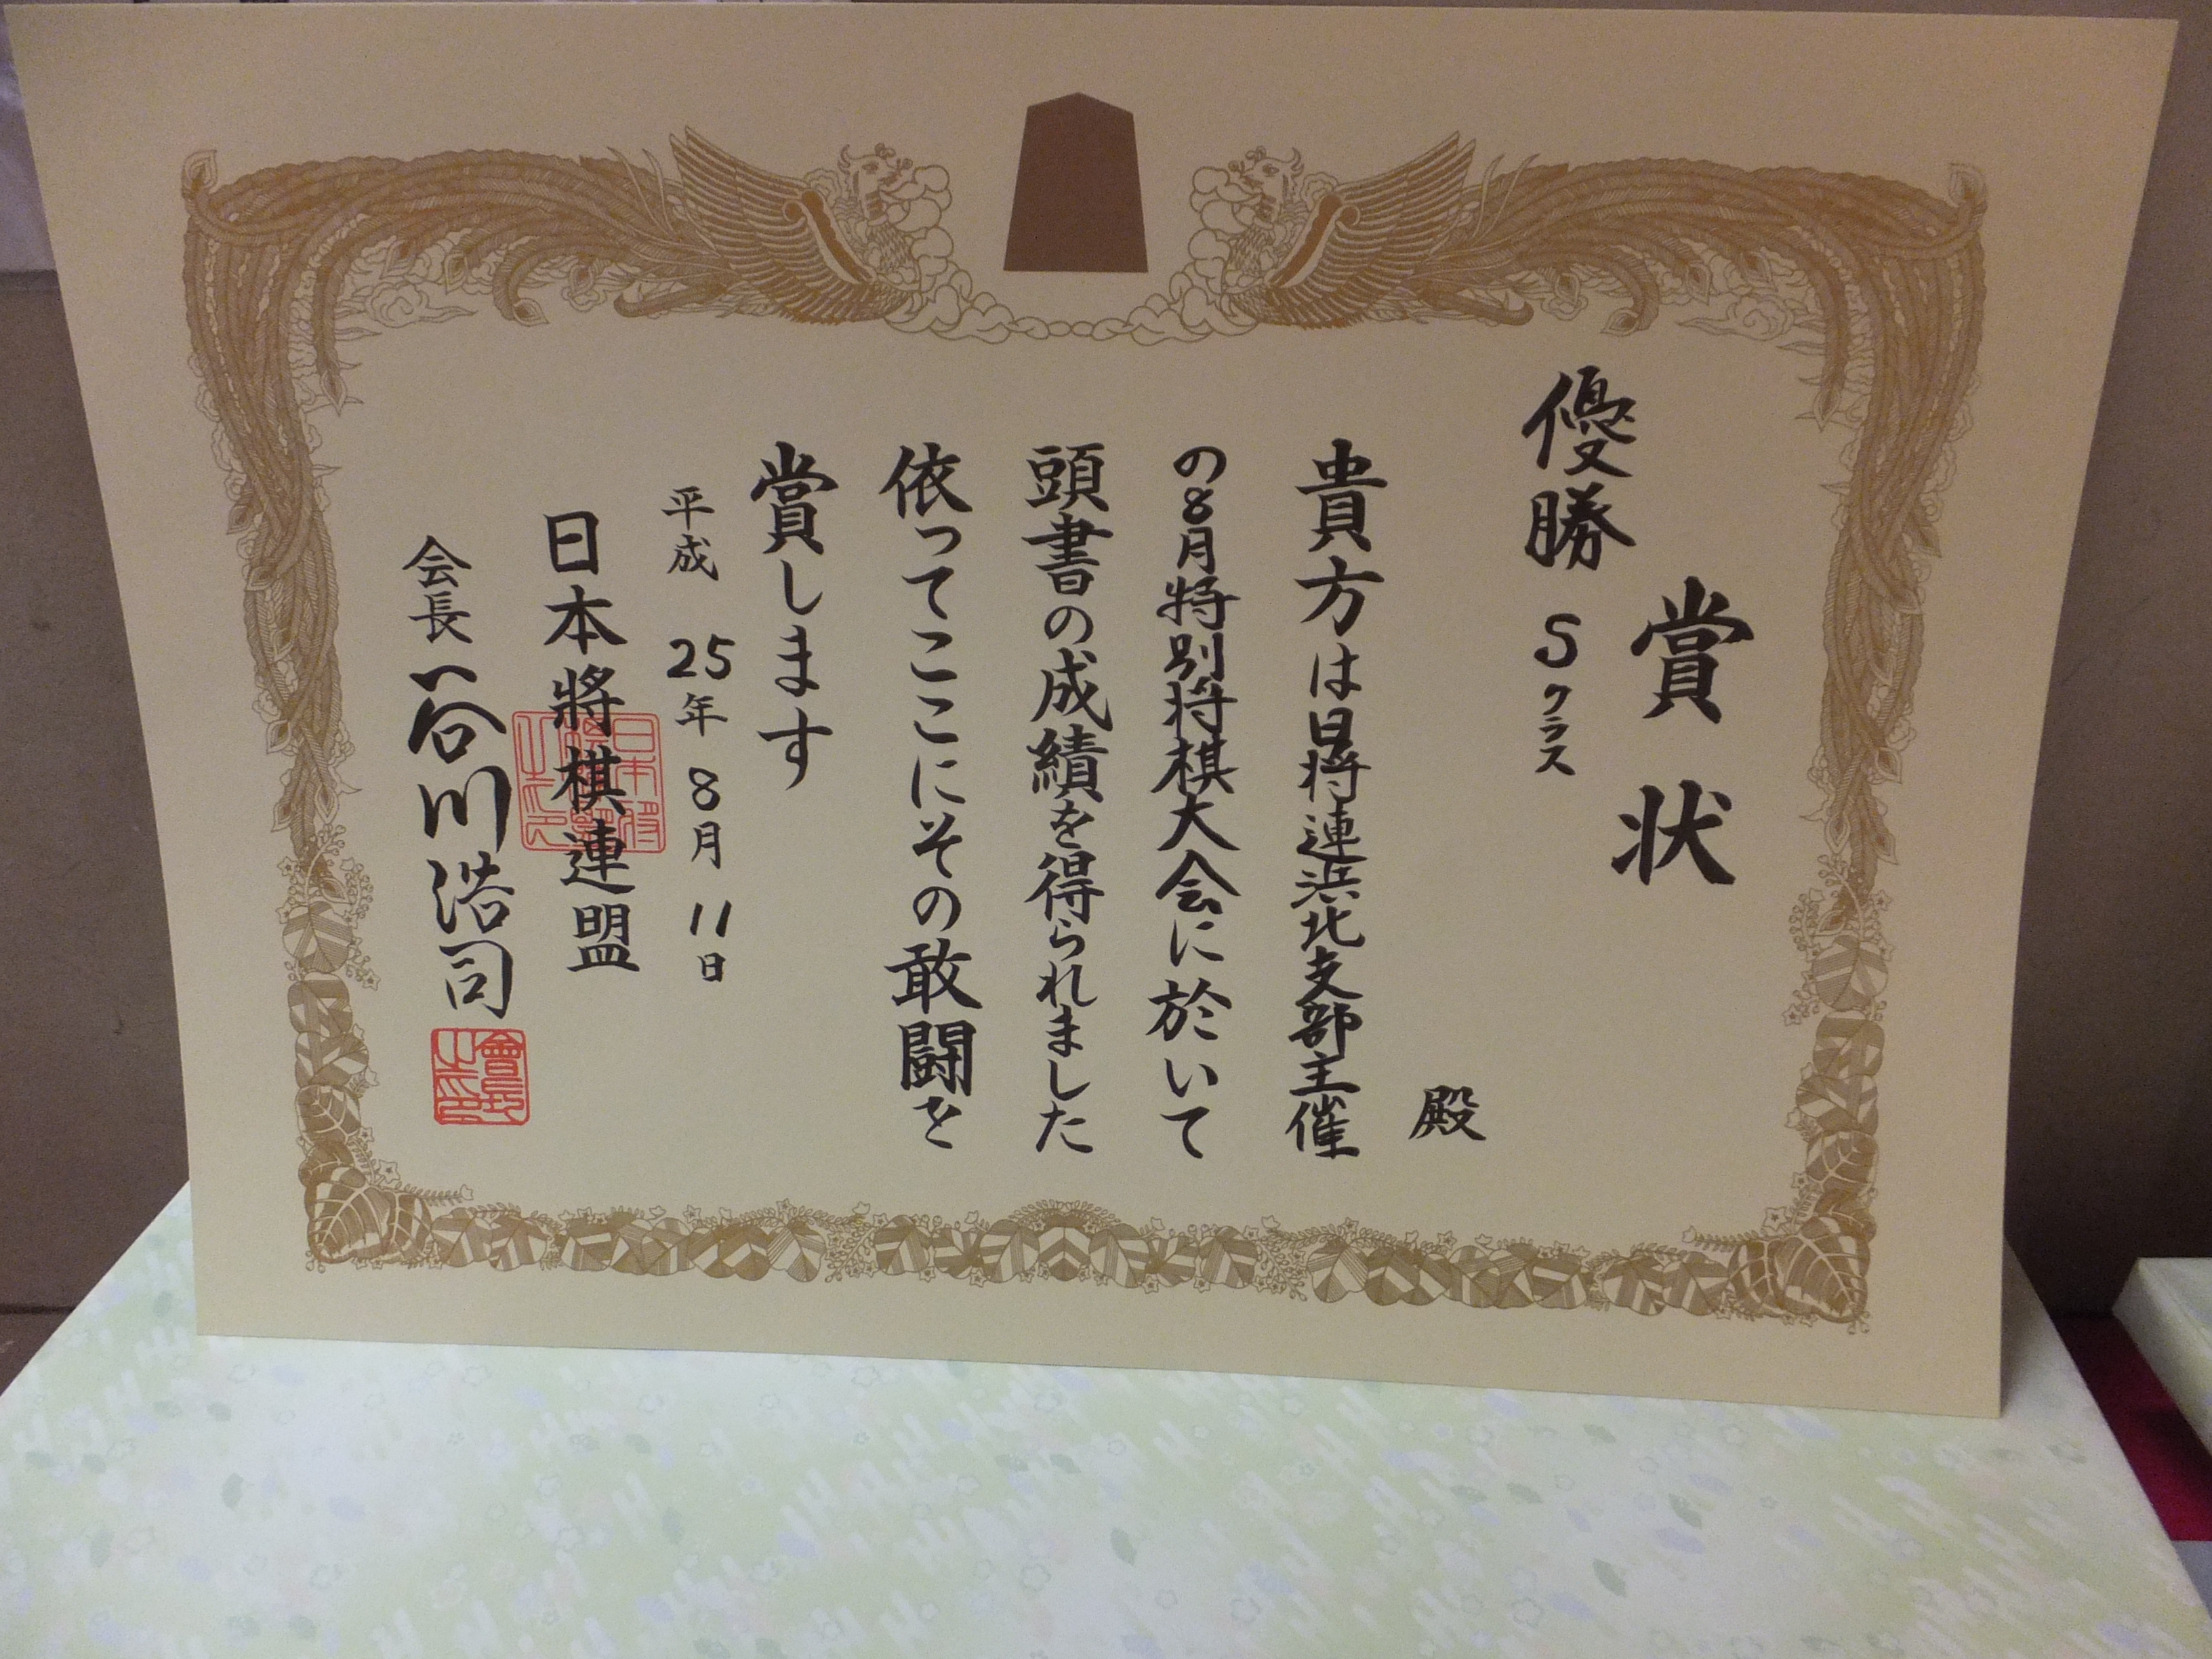 賞状
優勝 Sクラス
殿
貴方は日将連浜北支部主催
の8月特別将棋大会に於いて
頭書の成績を得られました
依ってここにその敢闘を
賞します
平成 25年 8月 11日
日本將棋連盟
会長 谷川浩司